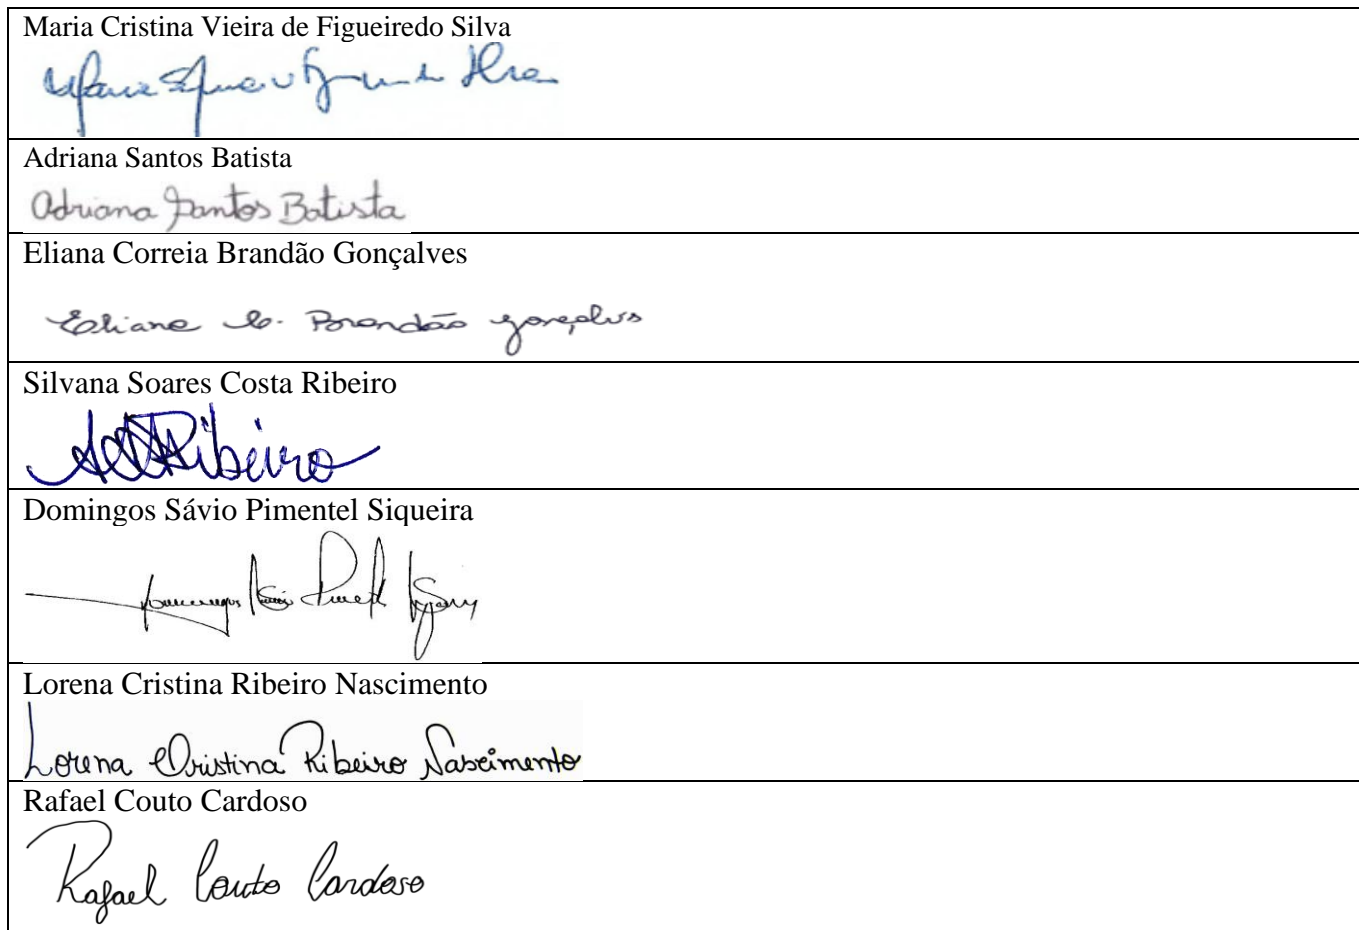 Maria Cristina Vieira de Figueiredo Silva
Adriana Santos Batista
Adriana Santos Batista
Eliana Correia Brandão Gonçalves
Eliana C. Brandão Gonçalves
Silvana Soares Costa Ribeiro
Ribeiro
Domingos Sávio Pimentel Siqueira
Domingos Sávio Pimentel
Lorena Cristina Ribeiro Nascimento
Lorena Cristina Ribeiro Nascimento
Rafael Couto Cardoso
Rafael Couto Cardoso